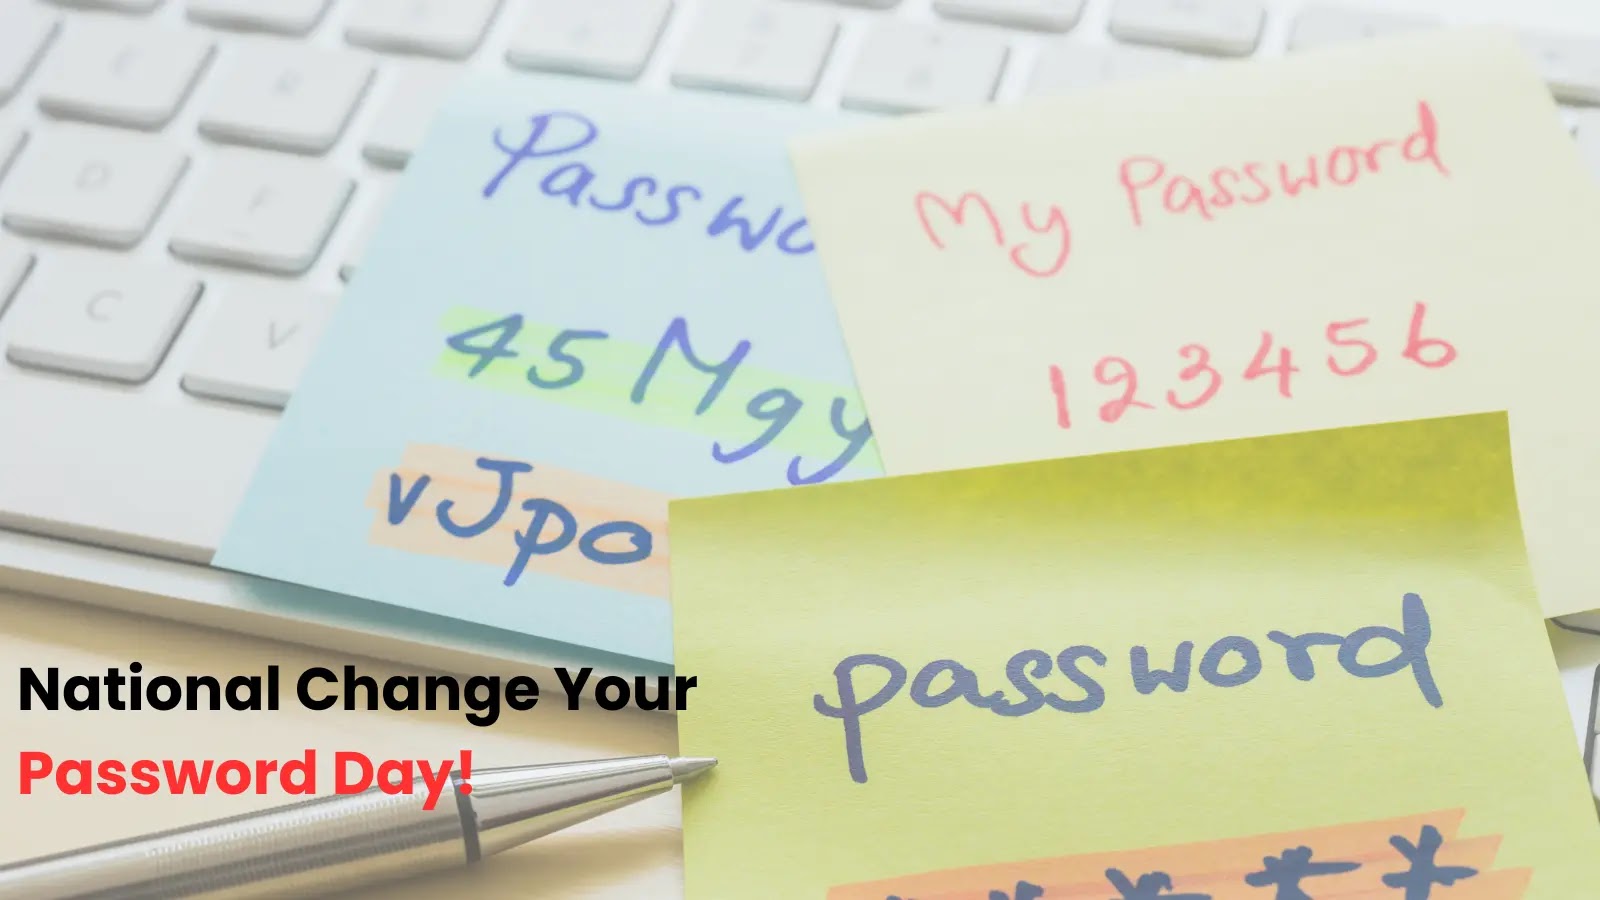 Passwo
45 Mgy
vJpo
My Password
123456
password
****
National Change Your
Password Day!
E
R
D
F
C
V